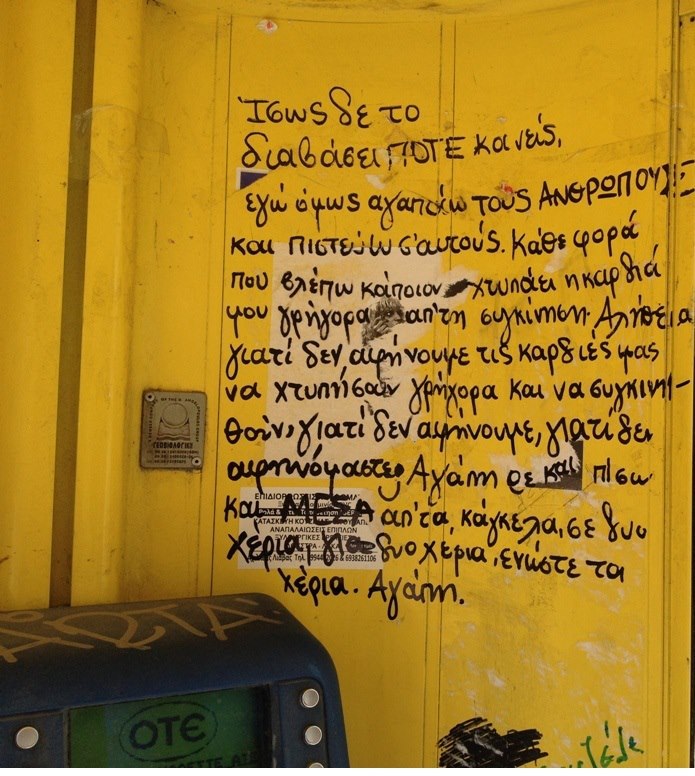 Ίσως δε το
διαβάσει ΠΟΤΕ κανείς,
εγώ όμως αγαπάω τους ΑΝΘΡΩΠΟΥΣ
και πιστεύω σ'αυτούς. Κάθε φορά
που βλέπω κάποιον χτυπάει η καρδιά
μου γρήγορα απ'τη συγκίνηση. Αλήθεια
γιατί δεν αφήνουμε τις καρδιές μας
να χτυπήσαν γρήγορα και να συγκινη-
θούν, γιατί δεν αφήνουμε, γιατί δεν
αφηνόμαστε; Αγάπη ρε και πίσω
και ΜΕSΑ απ'τα, κάγκελα, σε δυο
χέρια, για δυο χέρια, ενώστε τα
χέρια. Αγάπη.
ΕΠΙΔΙΟΡΘΩΣΕΙΣ
ΚΑΤΑΣΚΕΥΗ
ΑΝΑΠΑΛΑΙΩΣΕΙΣ ΕΠΙΠΛΩΝ
6938261106
ΟΤΕ